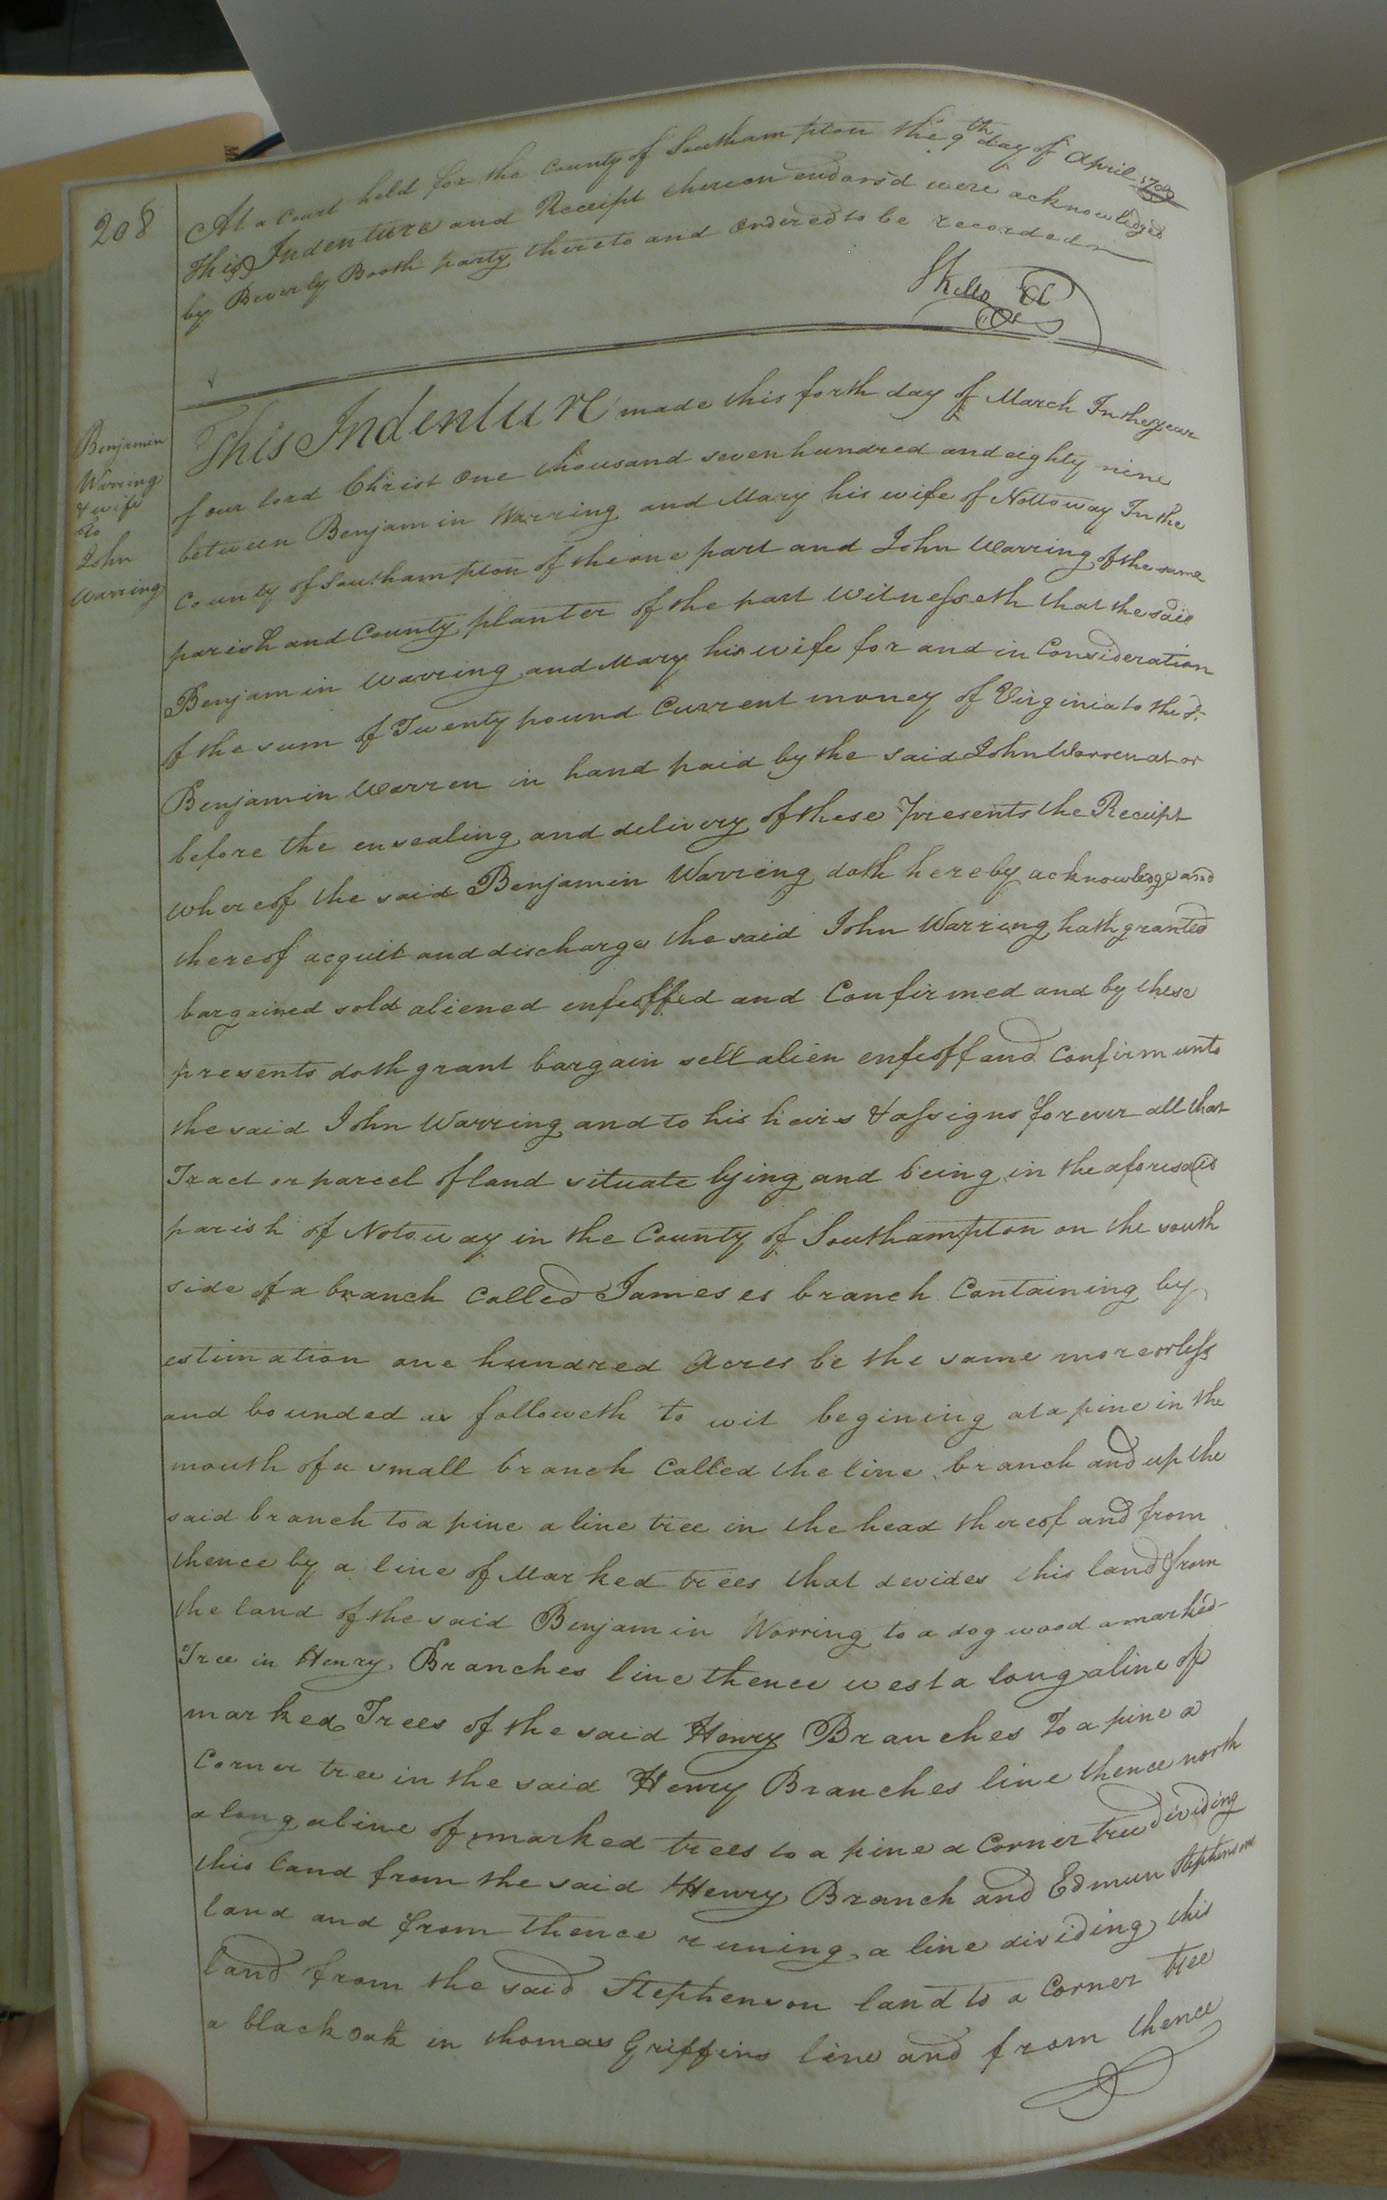 208
At a Court held for the County of Southampton the 9th day of April
This Indenture and Receipt thereon endorsd were acknowledged
by Beverly Booth party thereto and ordered to be recorded
Benjamin
Warring
& wife
to
John
Warring
This Indenture made this forth day of March In the year
of our lord Christ One thousand seven hundred and eighty nine
between Benjamin Warring and Mary his wife of Nottoway In the
County of Southampton of the one part and John Warring of the same
parish and County planter of the part Witnesseth that the said
Benjamin Warring and Mary his wife for and in Consideration
of the sum of Twenty pound Current money of Virginia to the sd.
Benjamin Warren in hand paid by the said John Warren at or
before the ensealing and delivery of these Presents the Receipt
whereof the said Benjamin Warring doth hereby acknowledge and
thereof acquit and discharge the said John Warring hath granted
bargained sold aliened enfeoffed and Confirmed and by these
presents doth grant bargain sell alien enfeoff and Confirm unto
the said John Warring and to his heirs & assigns forever all that
Tract or parcel of land situate lying and being in the aforesaid
parish of Notoway in the County of Southampton on the south
side of a branch Called Jameses branch Containing by
estimation one hundred Acres be the same more or less
and bounded as followeth to wit begining at a pine in the
mouth of a small branch Called the line branch and up the
said branch to a pine a line tree in the head thereof and from
thence by a line of Marked trees that devides this land from
the land of the said Benjamin Worring to a dog wood a marked
Tree in Henry Branches line thence west a long a line of
marked Trees of the said Henry Branches To a pine a
Corner tree in the said Henry Branches line thence north
a long a line of marked trees to a pine a Corner tree dividing
this land from the said Henry Branch and Edmun Stephenson
land and from thence runing a line dividing this
land from the said Stephenson land to a Corner tree
a black Oak in thomas Griffins line and from thence